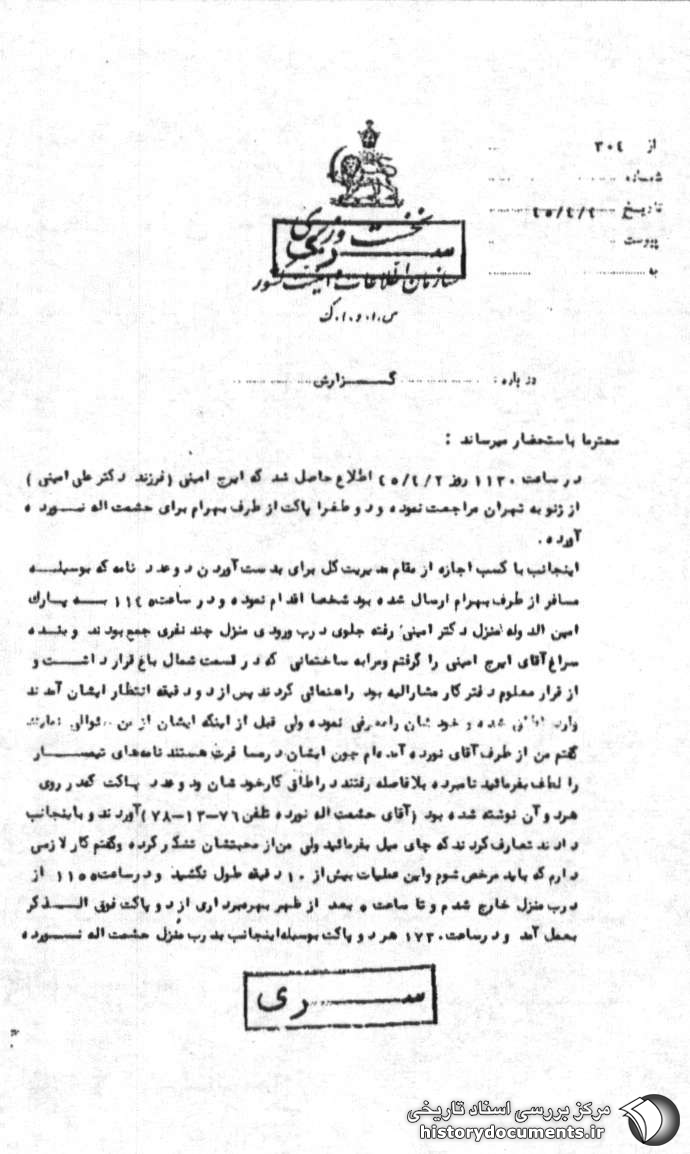 از ۳۰٤
شماره
تاریخ ٤٥/٤/٤
پیوست
به
نخست وزیری
سری
سازمان اطلاعات و امنیت کشور
س.ا.و.ا.ک
درباره : گزارش
محترما باستحضار میرساند :
در ساعت ۱۱۳۰ روز ٤٥/٤/۲ اطلاع حاصل شد که ایرج امینی (فرزند دکتر علی امینی )
از ژنو به تهران مراجعت نموده و دو طغرا پاکت از طرف بهرام برای حشمت اله نـــورده
آورده .
اینجانب با کسب اجازه از مقام مدیریت کل برای بدست آوردن دو عدد نامه که بوسیلـــه
مسافر از طرف بهرام ارسال شده بود شخصا اقدام نموده و در ساعت ۱۱٤٥ بـــه پـــارک
امین الدوله (منزل دکتر امینی) رفته جلوی درب ورودی منزل چند نفری جمع بودند و بنده
سراغ آقای ایرج امینی را گرفتم ومرا به ساختمانی که در قسمت شمال باغ قرار داشـــت و
از قرار معلوم دفتر کار مشارالیه بود راهنمائی کردند پس از دو دقیقه انتظار ایشان آمدند
وارد شده و خودشان را معرفی نموده ولی قبل از اینکه ایشان از من سئوالی نمایند
گفتم من از طرف آقای نورده آمده‌ام چون ایشان در مسافرت هستند نامه‌های تیمســـار
را لطف بفرمائید نامبرده بلافاصله رفتند در اطاق کار خود شان و دو عدد پاکت که در روی
هر دو آن نوشته شده بود (آقای حشمت اله نورده تلفن ۷٦-۱۳-۷۸) آوردند و باینجانب
دادند تعارف کردند که چای میل بفرمائید ولی من از محبتشان تشکر کرده وگفتم کار لازمی
دارم که باید مرخص شوم واین عملیات بیش از ۱۰ دقیقه طول نکشید و در ساعت ۱۱٥٥ از
درب منزل خارج شدم و تا ساعت ٥ بعد از ظهر بهره‌برداری از دو پاکت فوق الـــذکر
بعمل آمد و در ساعت ۱۷۳۰ هر دو پاکت بوسیله اینجانب بدرب منزل حشمت اله نـــورده
سری
مرکز بررسی اسناد تاریخی
historydocuments.ir